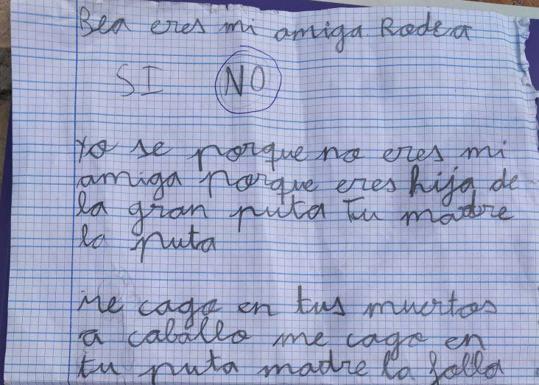 Bea eres mi amiga Rodea
SI NO
Yo se porque no eres mi
amiga porque eres hija de
la gran puta Tu madre
la puta
me cago en tus muertos
a caballo me cago en
tu puta madre la folla